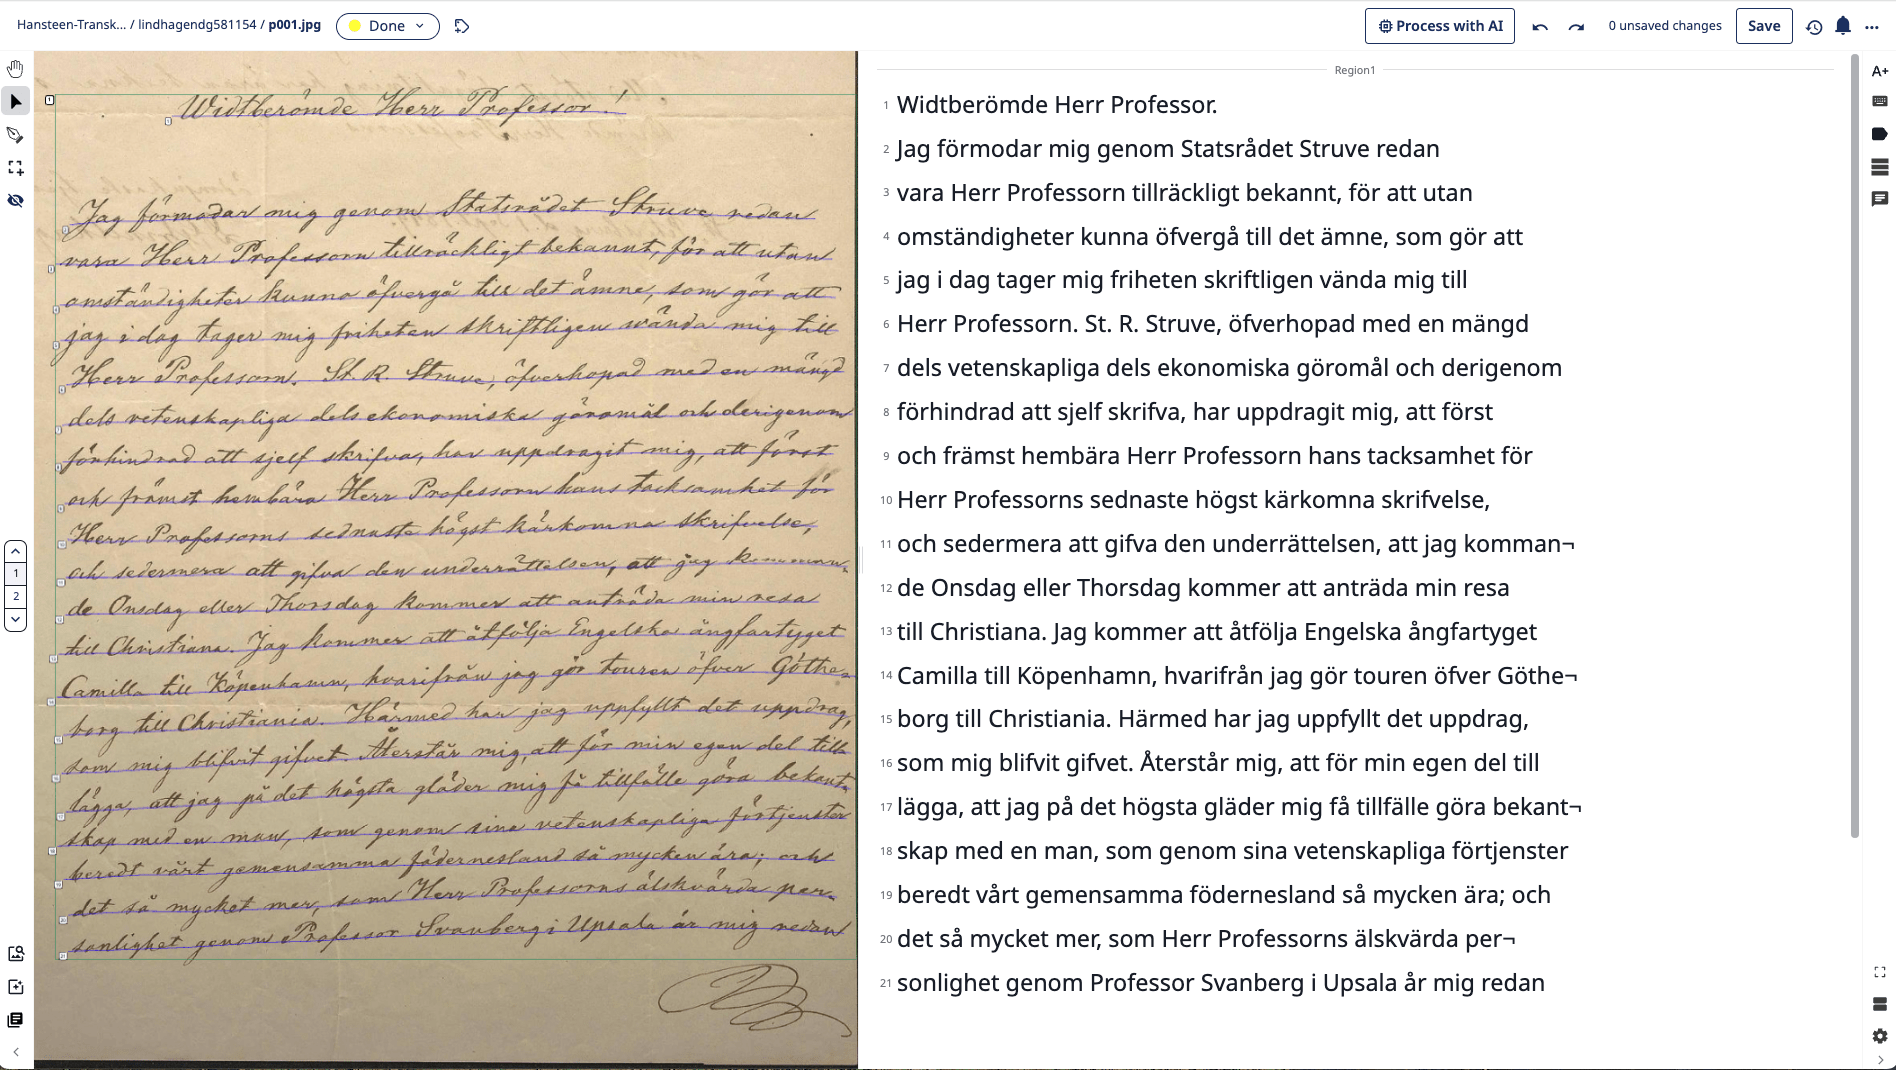 Hansteen-Transk... / lindhagendg581154 / p001.jpg
Done
Process with AI
0 unsaved changes
Save
Widtberömde Herr Professor!
Jag förmodar mig genom Statsrådet Struve redan
vara Herr Professorn tillräckligt bekannt, för att utan
omständigheter kunna öfvergå till det ämne, som gör att
jag i dag tager mig friheten skriftligen vända mig till
Herr Professorn. St. R. Struve, öfverhopad med en mängd
dels vetenskapliga dels ekonomiska göromål och derigenom
förhindrad att sjelf skrifva, har uppdragit mig, att först
och främst hembära Herr Professorn hans tacksamhet för
Herr Professorns sednaste högst kärkomna skrifvelse,
och sedermera att gifva den underrättelsen, att jag komman-
de Onsdag eller Thorsdag kommer att anträda min resa
till Christiana. Jag kommer att åtfölja Engelska ångfartyget
Camilla till Köpenhamn, hvarifrån jag gör touren öfver Göthe-
borg till Christiania. Härmed har jag uppfyllt det uppdrag,
som mig blifvit gifvet. Återstår mig, att för min egen del till
lägga, att jag på det högsta gläder mig få tillfälle göra bekant-
skap med en man, som genom sina vetenskapliga förtjenster
beredt vårt gemensamma fädernesland så mycken ära; och
det så mycket mer, som Herr Professorns älskvärda per-
sonlighet genom Professor Svanberg i Upsala är mig redan
1
2
Region1
1 Widtberömde Herr Professor.
2 Jag förmodar mig genom Statsrådet Struve redan
3 vara Herr Professorn tillräckligt bekannt, för att utan
4 omständigheter kunna öfvergå till det ämne, som gör att
5 jag i dag tager mig friheten skriftligen vända mig till
6 Herr Professorn. St. R. Struve, öfverhopad med en mängd
7 dels vetenskapliga dels ekonomiska göromål och derigenom
8 förhindrad att sjelf skrifva, har uppdragit mig, att först
9 och främst hembära Herr Professorn hans tacksamhet för
10 Herr Professorns sednaste högst kärkomna skrifvelse,
11 och sedermera att gifva den underrättelsen, att jag komman¬
12 de Onsdag eller Thorsdag kommer att anträda min resa
13 till Christiana. Jag kommer att åtfölja Engelska ångfartyget
14 Camilla till Köpenhamn, hvarifrån jag gör touren öfver Göthe¬
15 borg till Christiania. Härmed har jag uppfyllt det uppdrag,
16 som mig blifvit gifvet. Återstår mig, att för min egen del till
17 lägga, att jag på det högsta gläder mig få tillfälle göra bekant¬
18 skap med en man, som genom sina vetenskapliga förtjenster
19 beredt vårt gemensamma födernesland så mycken ära; och
20 det så mycket mer, som Herr Professorns älskvärda per¬
21 sonlighet genom Professor Svanberg i Upsala år mig redan
A+